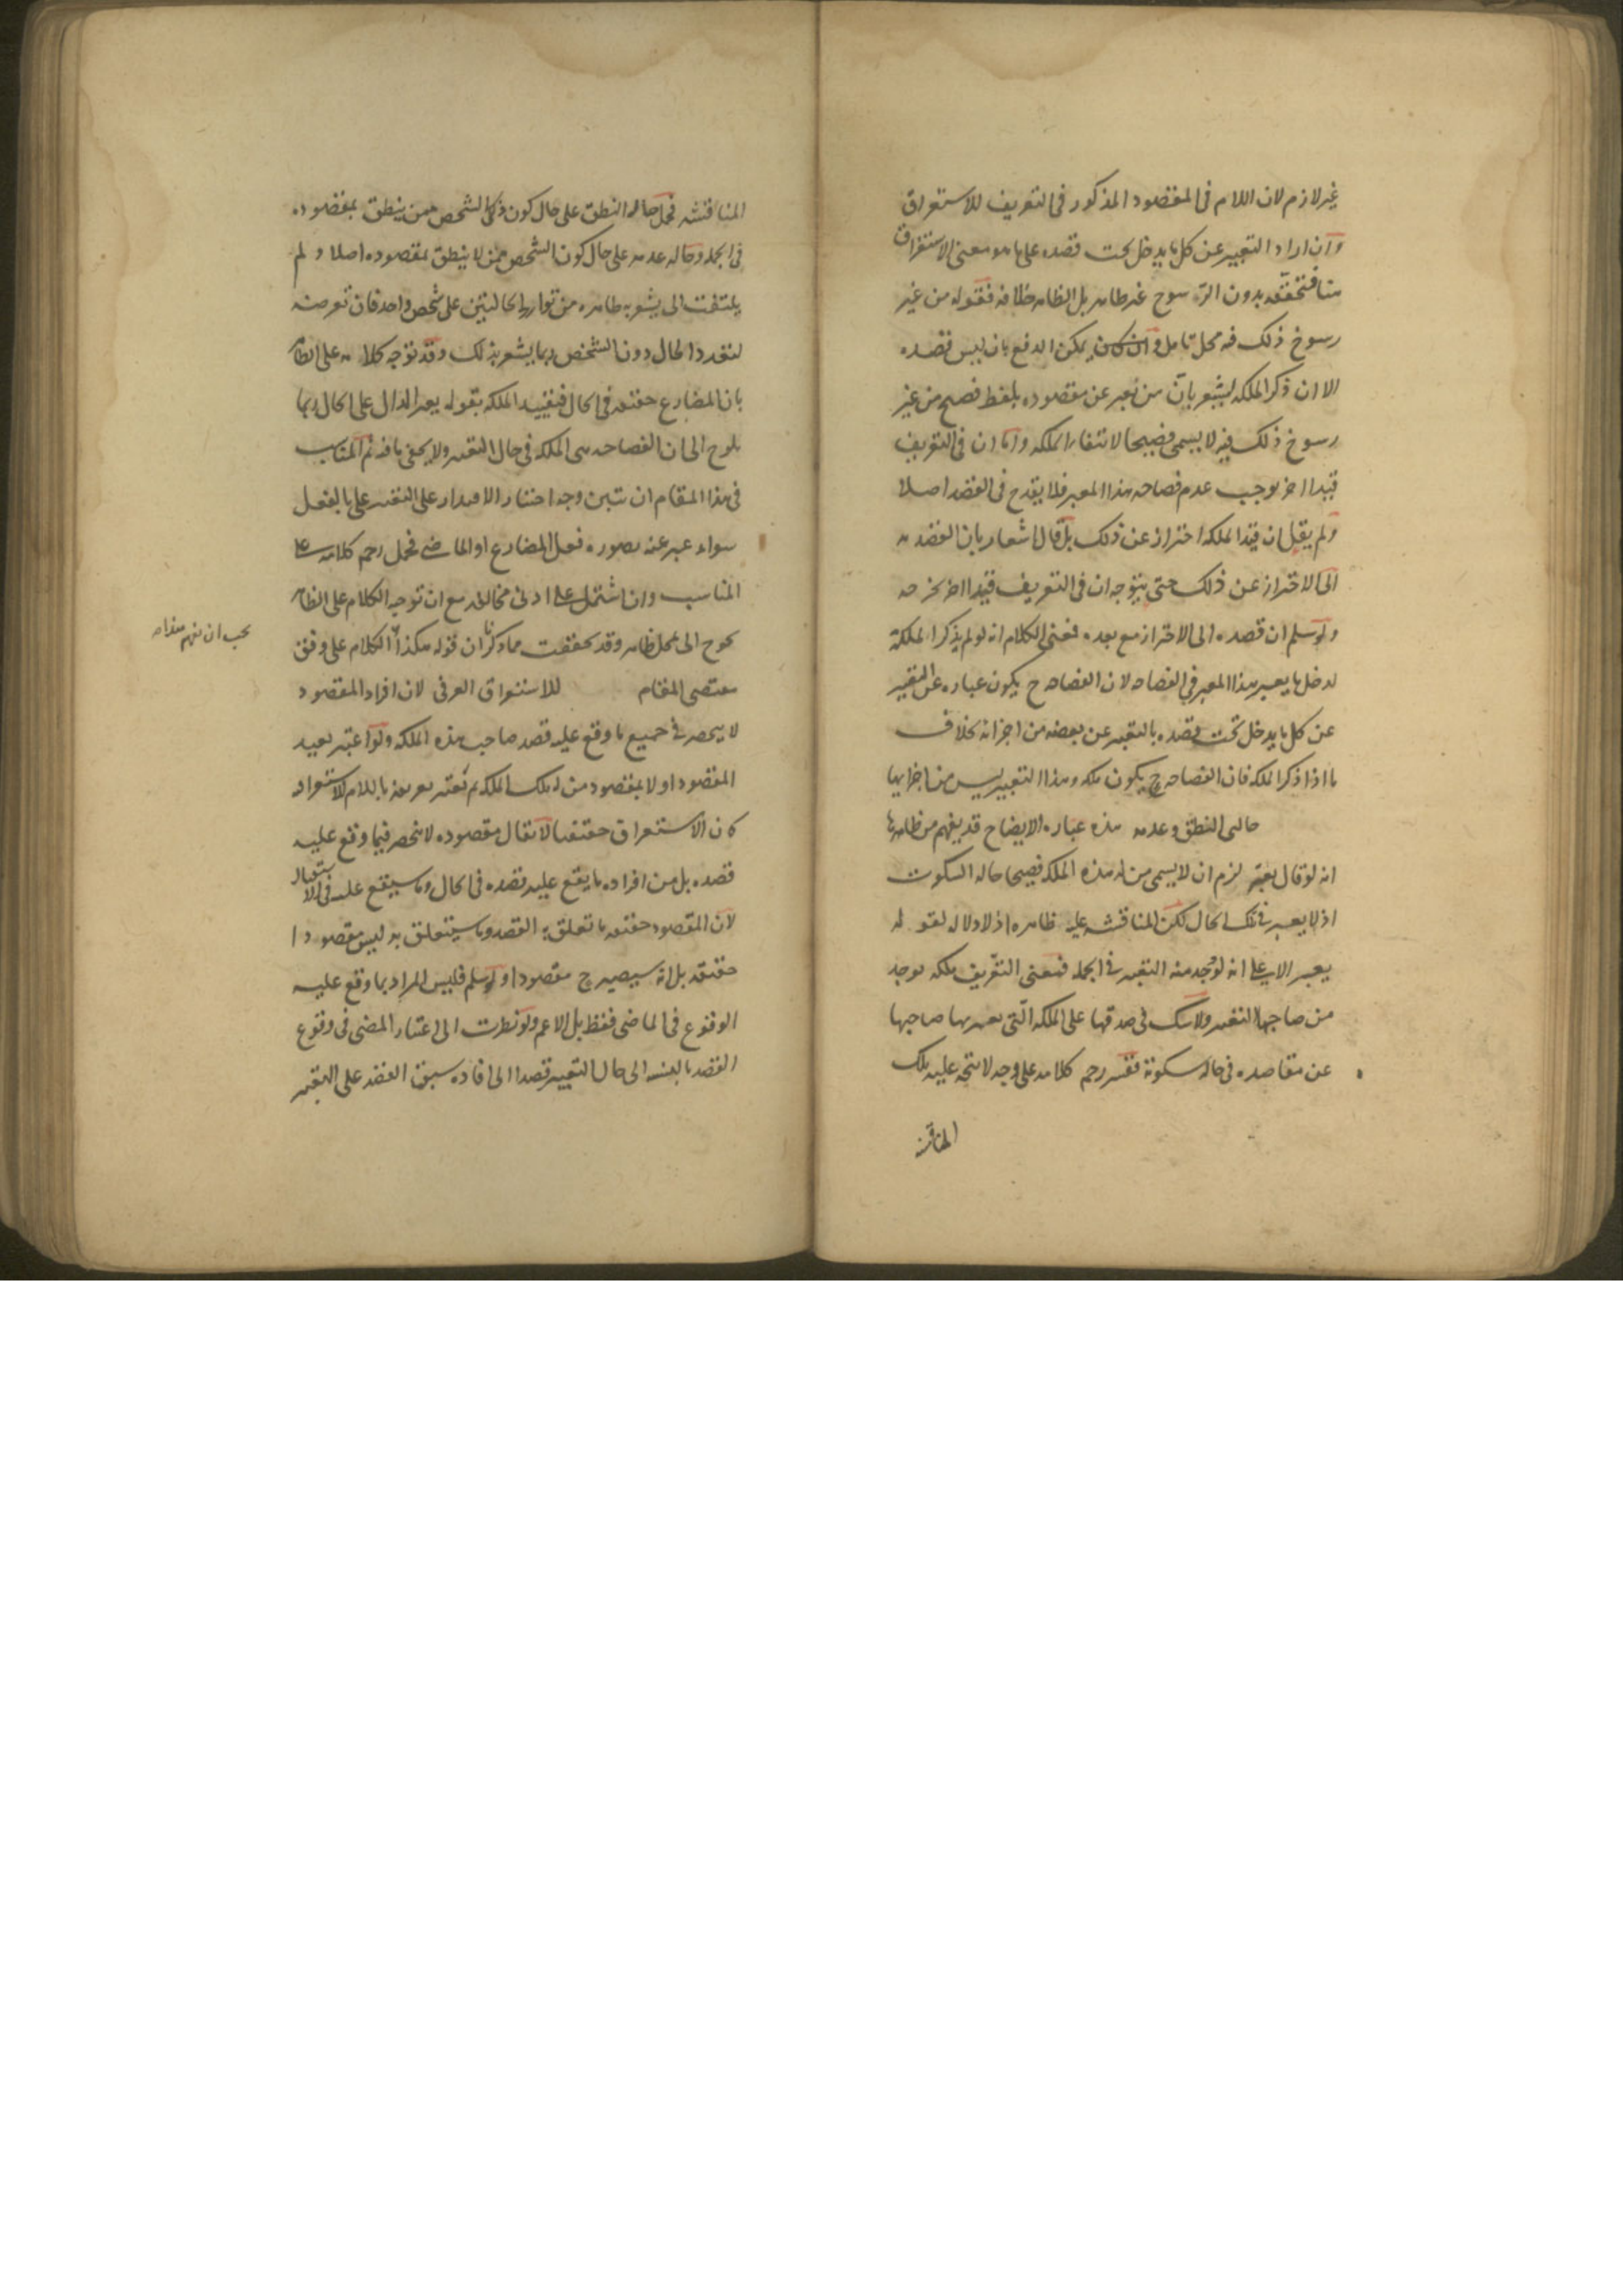 غير لازم لان اللام فى المقصود المذكور فى التعريف للاستغراق
وان اراد التعبير عن كل ما يدخل تحت قصده على ما هو معنى الاستغراق
هنا فتحققه بدون الرسوخ غير ظاهر بل الظاهر خلافه فقوله من غير
رسوخ ذلك فيه محل تامل وان كان يمكن الدفع بان ليس قصده
الا ان ذكر الملكه يشعر بان من يعبر عن مقصوده بلفظ فصيح من غير
رسوخ ذلك فيه لا يسمى فصيحا لانتفاء الملكه واما ان فى التعريف
قيدا اخر يوجب عدم فصاحه هذا المعبر فلا يقدح فى القصد اصلا
ولم يقل ان قيد الملكه احتراز عن ذلك بل قال اشعار بان القصد
الى الاحتراز عن ذلك حتى يتوجه ان فى التعريف قيدا اخر يخرجه
ولو سلم ان قصده الى الاحتراز مع بعده فمعنى الكلام انه لو لم يذكر الملكة
لدخل ما يعبر هذا المعبر فى الفصاحه لان الفصاحه ح يكون عباره عن التعبير
عن كل ما يدخل تحت قصده بالتعبير عن بعضه من اجزائه بخلاف
ما اذا ذكر الملكه فان الفصاحه ح يكون ملكه وهذا التعبير ليس من اجزايها
حالتى النطق وعدمه هذه عباره الايضاح قد يفهم من ظاهرها
انه لو قال يعبر لزم ان لا يسمى من له هذه الملكه فصيحا حاله السكوت
اذ لا يعبر فى تلك الحال لكن المناقشه عليه ظاهره اذ لا دلاله لقوله
يعبر الا على انه لوجد منه التعبير فى الجمله فمعنى التعريف ملكه يوجد
من صاحبها التعبير ولا شك فى صدقها على الملكه التى يعبر بها صاحبها
عن مقاصده فى حاله سكوته ففسر رحم كلامه على وجه لا يتجه عليه تلك
المناقشه
المناقشه فحمل حاله النطق على حال كون ذلك الشخص ممن ينطق بمقصوده
فى الجمله وحاله عدمه على حال كون الشخص ممن لا ينطق بمقصوده اصلا ولم
يلتفت الى ما يشعر به ظاهره من توارد الحالتين على شخص واحد فان تعرضه
لتعدد الحال دون الشخص ربما يشعر بذلك وقد توجه كلامه على الظاهر
بان المضارع حقيقه فى الحال فتقييد الملكه بقوله يعبر الدال على الحال ربما
يلوح الى ان الفصاحه هى الملكه فى حال التعبير ولا يخفى ما فيه ثم المناسب
فى هذا المقام ان يتبين وجه اختيار الاقتدار على التعبير على بالفعل
سواء عبر عنه بصوره فعل المضارع او الماضى فحمل رحم كلامه على
المناسب وان اشتمل على ادنى مخالفه مع ان توجيه الكلام على الظاهر
يحوج الى تمحل ظاهر وقد تحققت مما ذكرنا ان قوله هكذا الكلام على وفق
يجب ان يفهم هذا
مقتضى المقام للاستغراق العرفى لان افراد المقصود
لا ينحصر فى جميع ما وقع عليه قصد صاحب هذه الملكه ولو اعتبر تقييد
المقصود اولا بمقصود من له تلك الملكه ثم تعتبر تعريفه باللام للاستغراق
كان الاستغراق حقيقيا لا يقال مقصوده لا ينحصر فيما وقع عليه
قصده بل من افراده ما يقع عليه قصده فى الحال وما سيقع عليه فى الاستقبال
لان المقصود حقيقه ما تعلق به القصد وما سيتعلق به ليس مقصودا
حقيقه بل انه سيصير ح مقصودا ولو سلم فليس المراد بما وقع عليه
الوقوع فى الماضى فقط بل الاعم ولو نظرت الى اعتبار المضى فى وقوع
القصد بالنسبه الى حال التعبير قصدا الى افاده سبق القصد على التعبير